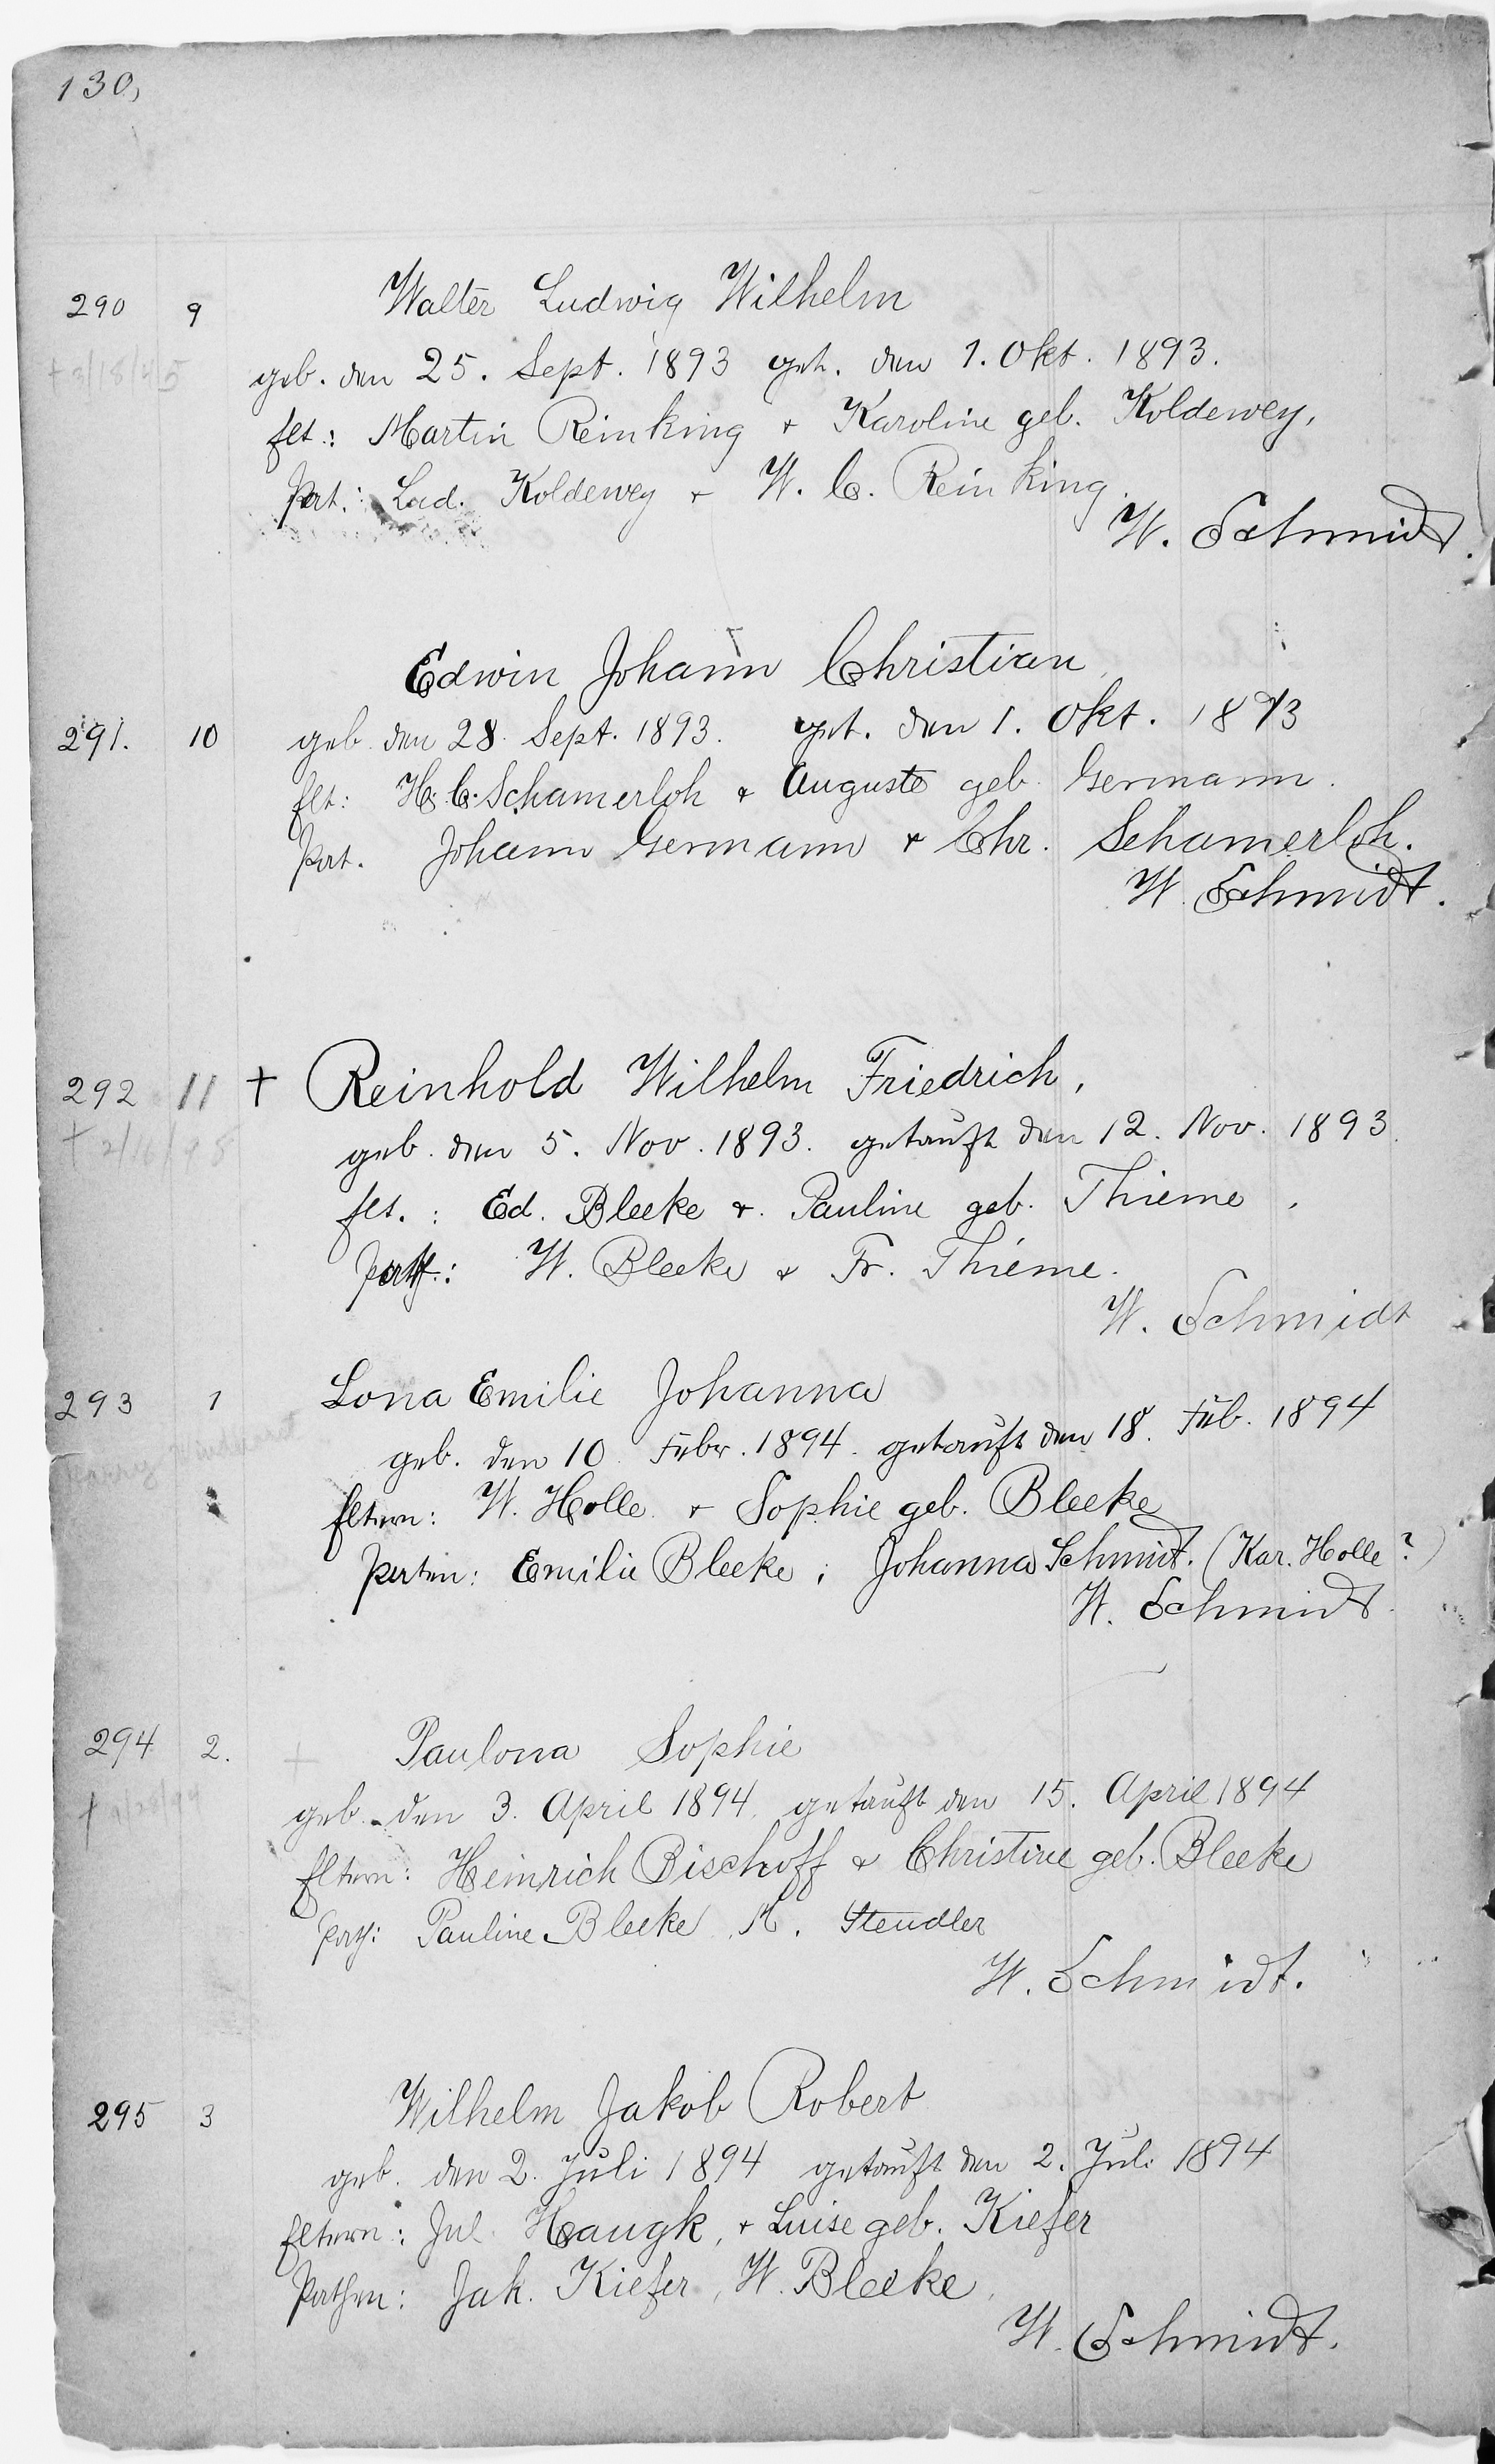 130,
290 9 Walter Ludwig Wilhelm
geb. den 25. Sept. 1893 get. den 1. Okt. 1893.
Elt.: Martin Reinking + Karoline geb. Koldewey,
Pat.: Lud. Koldewey + W. C. Reinking.
W. Schmidt.
Edwin Johann Christian
291. 10 geb. den 28. Sept. 1893. get. den 1. Okt. 1893
Elt: H. C. Schamerloh + Auguste geb. Germann.
Pat. Johann Germann + Chr. Schamerloh.
W. Schmidt.
292 11 + Reinhold Wilhelm Friedrich,
geb. den 5. Nov. 1893. getauft den 12. Nov. 1893.
Elt.: Ed. Bleeke +. Pauline geb. Thieme.
Path.: W. Bleeke + Fr. Thieme.
W. Schmidt
293 1 Lona Emilie Johanna
geb. den 10. Febr. 1894. getauft den 18. Feb. 1894
Eltern: W. Holle + Sophie geb. Bleeke
Paten: Emilie Bleeke, Johanna Schmidt. (Kar. Holle?)
W. Schmidt.
294 2. + Paulona Sophie
geb. den 3. April 1894. getauft den 15. April 1894
Eltern: Heinrich Bischoff + Christine geb. Bleeke
Path: Pauline Bleeke, M. Steudler
W. Schmidt.
295 3 Wilhelm Jakob Robert
geb. den 2. Juli 1894 getauft den 2. Juli 1894
Eltern: Jul. Haugk, + Luise geb. Kiefer
Pathen: Jak. Kiefer, W. Bleeke,
W. Schmidt.